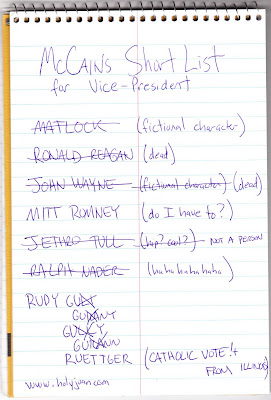 McCAINS SHORT LIST
for Vice-President
MATLOCK (fictional character)
RONALD REAGAN (dead)
JOHN WAYNE (fictional character) (dead)
MITT ROMNEY (do I have to?)
JETHRO TULL (hip? cool?) NOT A PERSON
RALPH NADER (hahahahahaha)
RUDY
RUETTGER (CATHOLIC VOTE! &
FROM ILLINOIS)
www.holyjuan.com